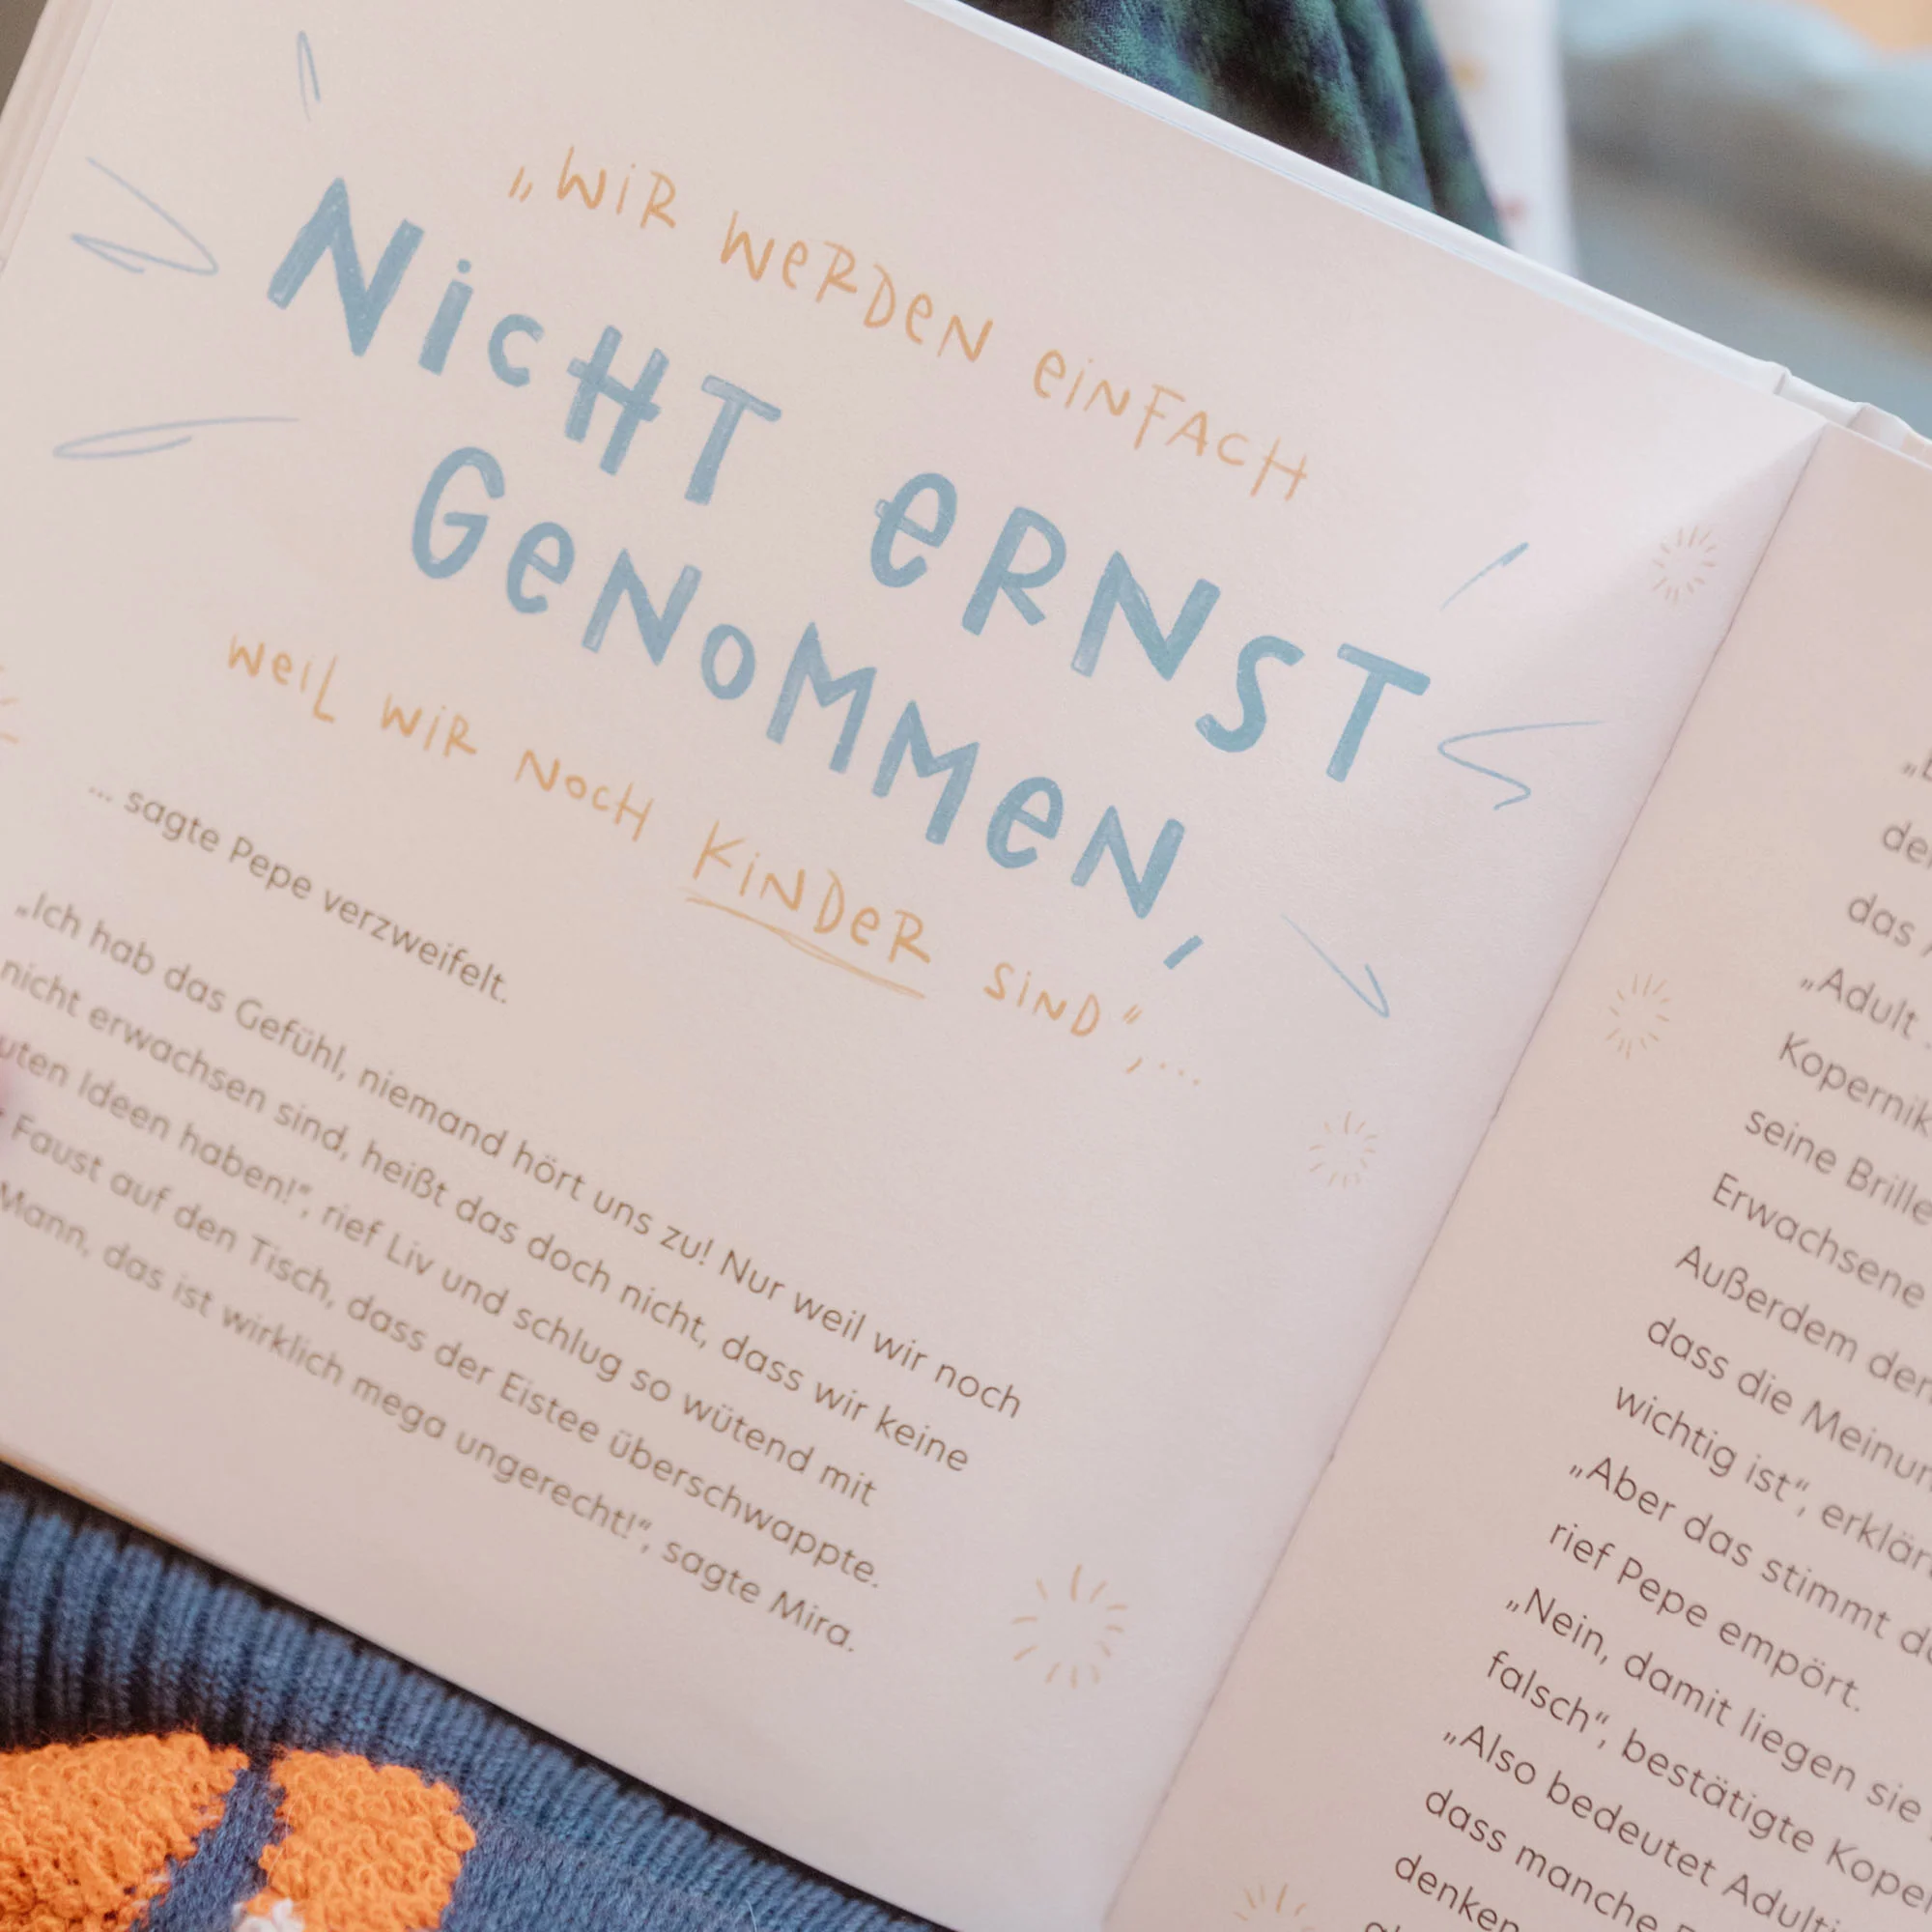 „WiR WeRDeN eiNFACH
NicHT eRNST
GeNoMMeN,
WeiL WiR NocH KiNDeR SiND“,...
... sagte Pepe verzweifelt.
„Ich hab das Gefühl, niemand hört uns zu! Nur weil wir noch
nicht erwachsen sind, heißt das doch nicht, dass wir keine
uten Ideen haben!“, rief Liv und schlug so wütend mit
Faust auf den Tisch, dass der Eistee überschwappte.
Mann, das ist wirklich mega ungerecht!“, sagte Mira.
das
„Adult
Kopernik
seine Brille
Erwachsene
Außerdem den
dass die Meinun
wichtig ist“, erklär
„Aber das stimmt d
rief Pepe empört.
„Nein, damit liegen sie
falsch“, bestätigte Kope
„Also bedeutet Adult
dass manche
denken